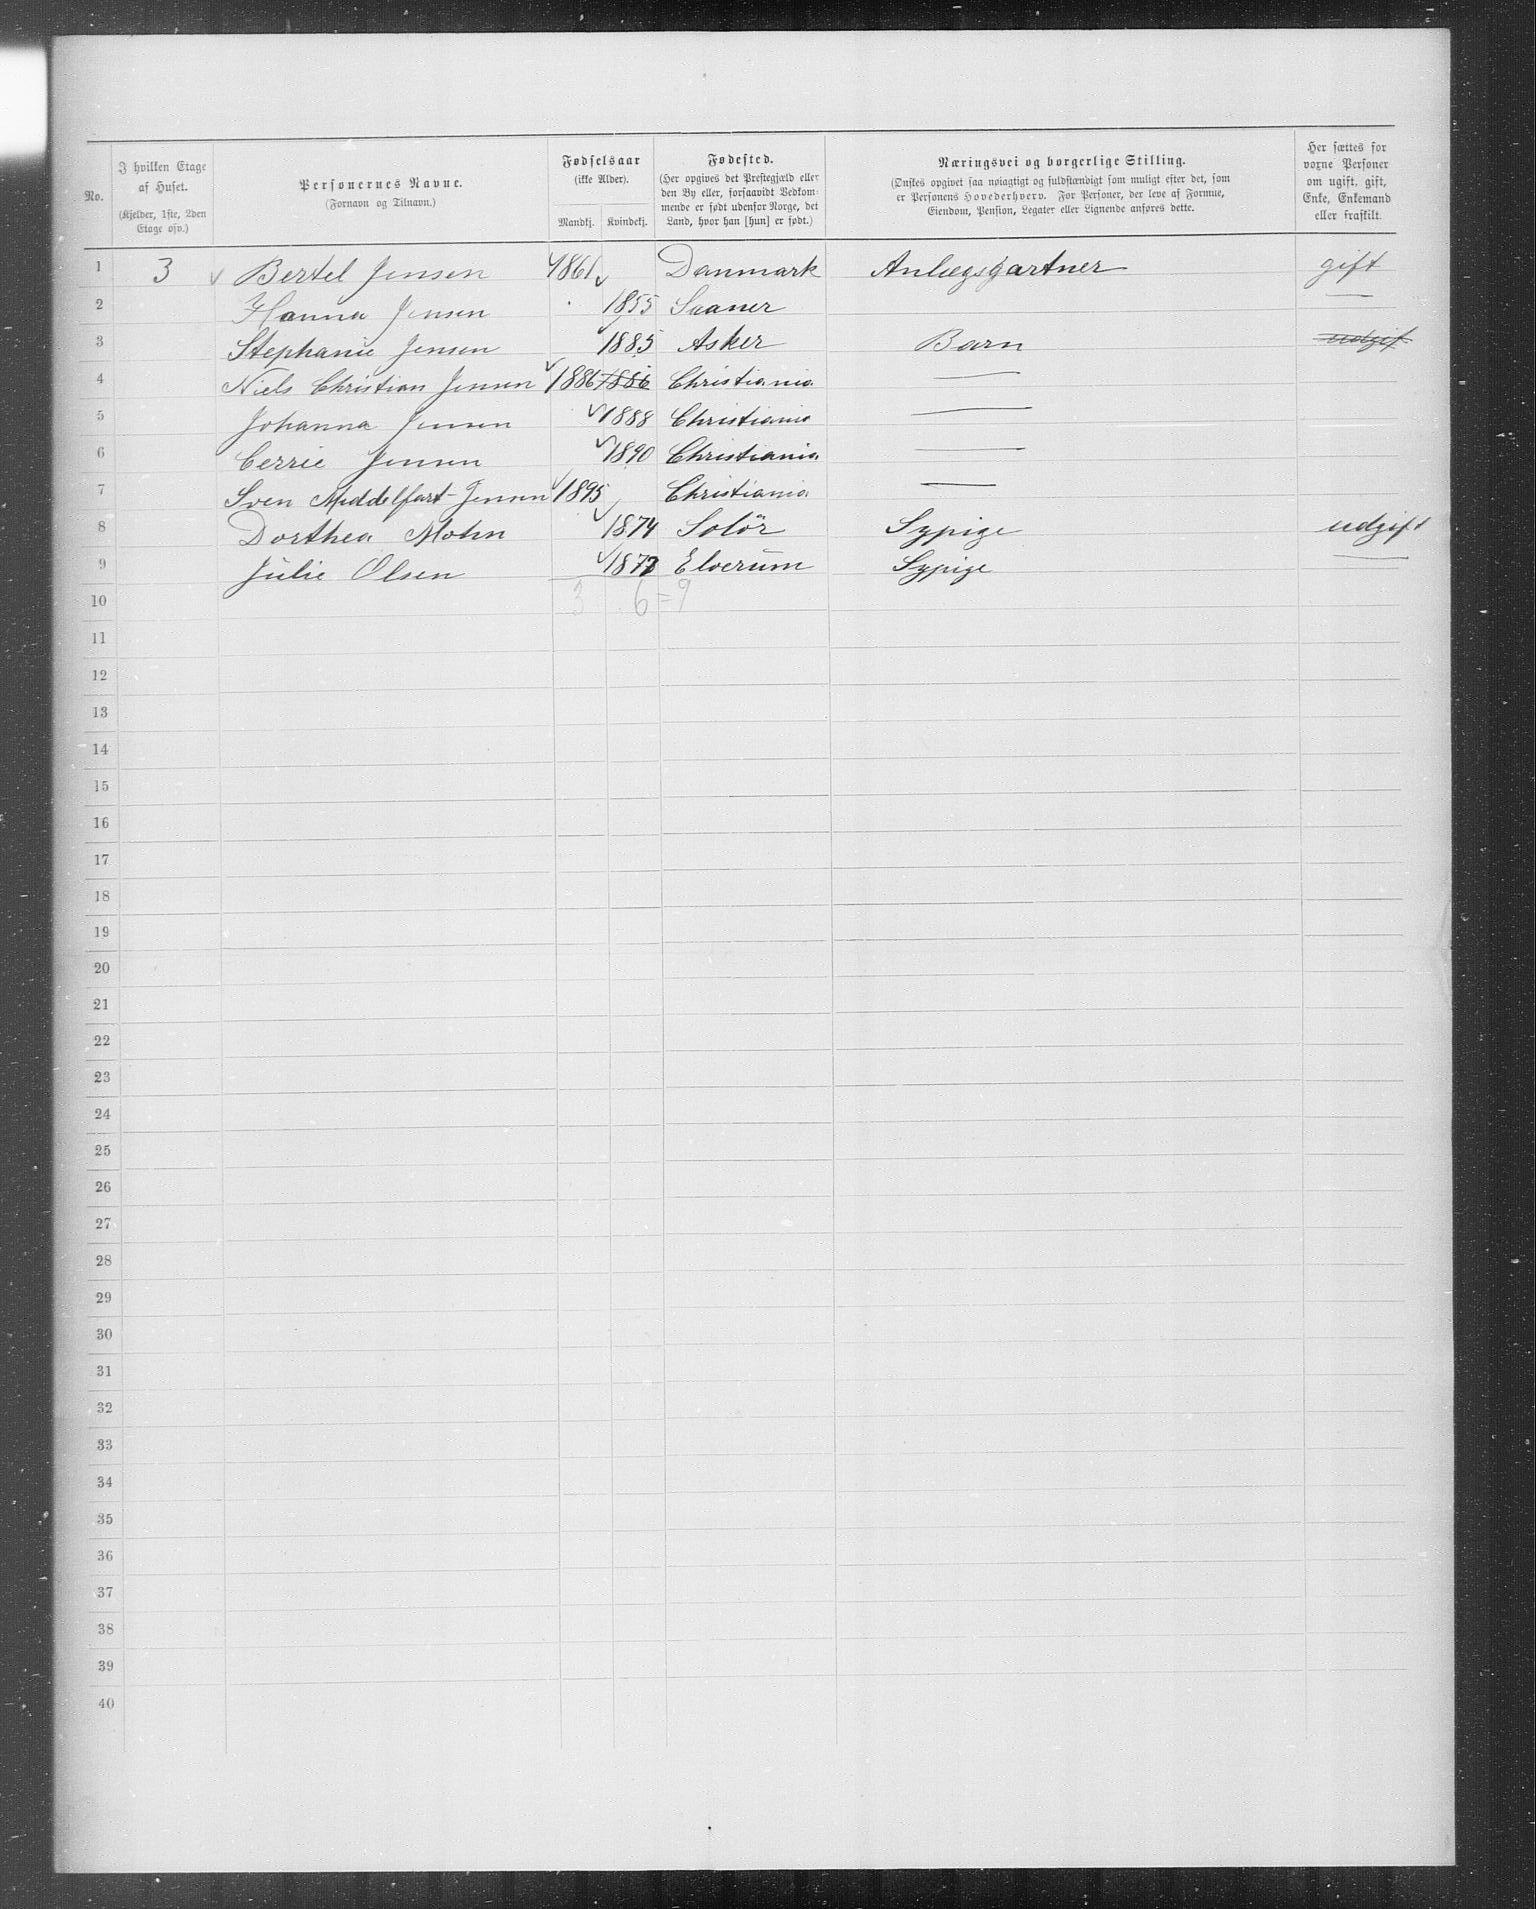 No. | I hvilken Etage af Huset. (Kjelder, 1ste, 2den Etage osv.) | Personernes Navne. (Fornavn og Tilnavn.) | Fødselsaar (ikke Alder). Mandkj. | Kvindekj. | Fødested. (Her opgives det Prestegjæld eller den By eller, forsaavidt Vedkommende er født udenfor Norge, det Land, hvor han [hun] er født.) | Næringsvei og borgerlige Stilling. (Ønskes opgivet saa nøiagtigt og fuldstændigt som muligt efter det, som er Personens Hovederhverv. For Personer, der leve af Formue, Eiendom, Pension, Legater eller Lignende anføres dette. | Her sættes for voxne Personer om ugift, gift, Enke, Enkemand eller fraskilt.
1 3 Bertel Jensen 1861 Danmark Anlægsgartner gift
2 Hanna Jensen 1855 Saaner —
3 Stephanie Jensen 1885 Asker Barn udgif
4 Niels Christian Jensen 1886 1886 Christiania —
5 Johanna Jensen 1888 Christiania —
6 Cerrie Jensen 1890 Christiania —
7 Sven Middelfart-Jensen 1895 Christiania —
8 Dorthea Mohn 1874 Solör Sypige udgift
9 Julie Olsen 1877 Elverum Sypige —
10 3 6 = 9
11
12
13
14
15
16
17
18
19
20
21
22
23
24
25
26
27
28
29
30
31
32
33
34
35
36
37
38
39
40